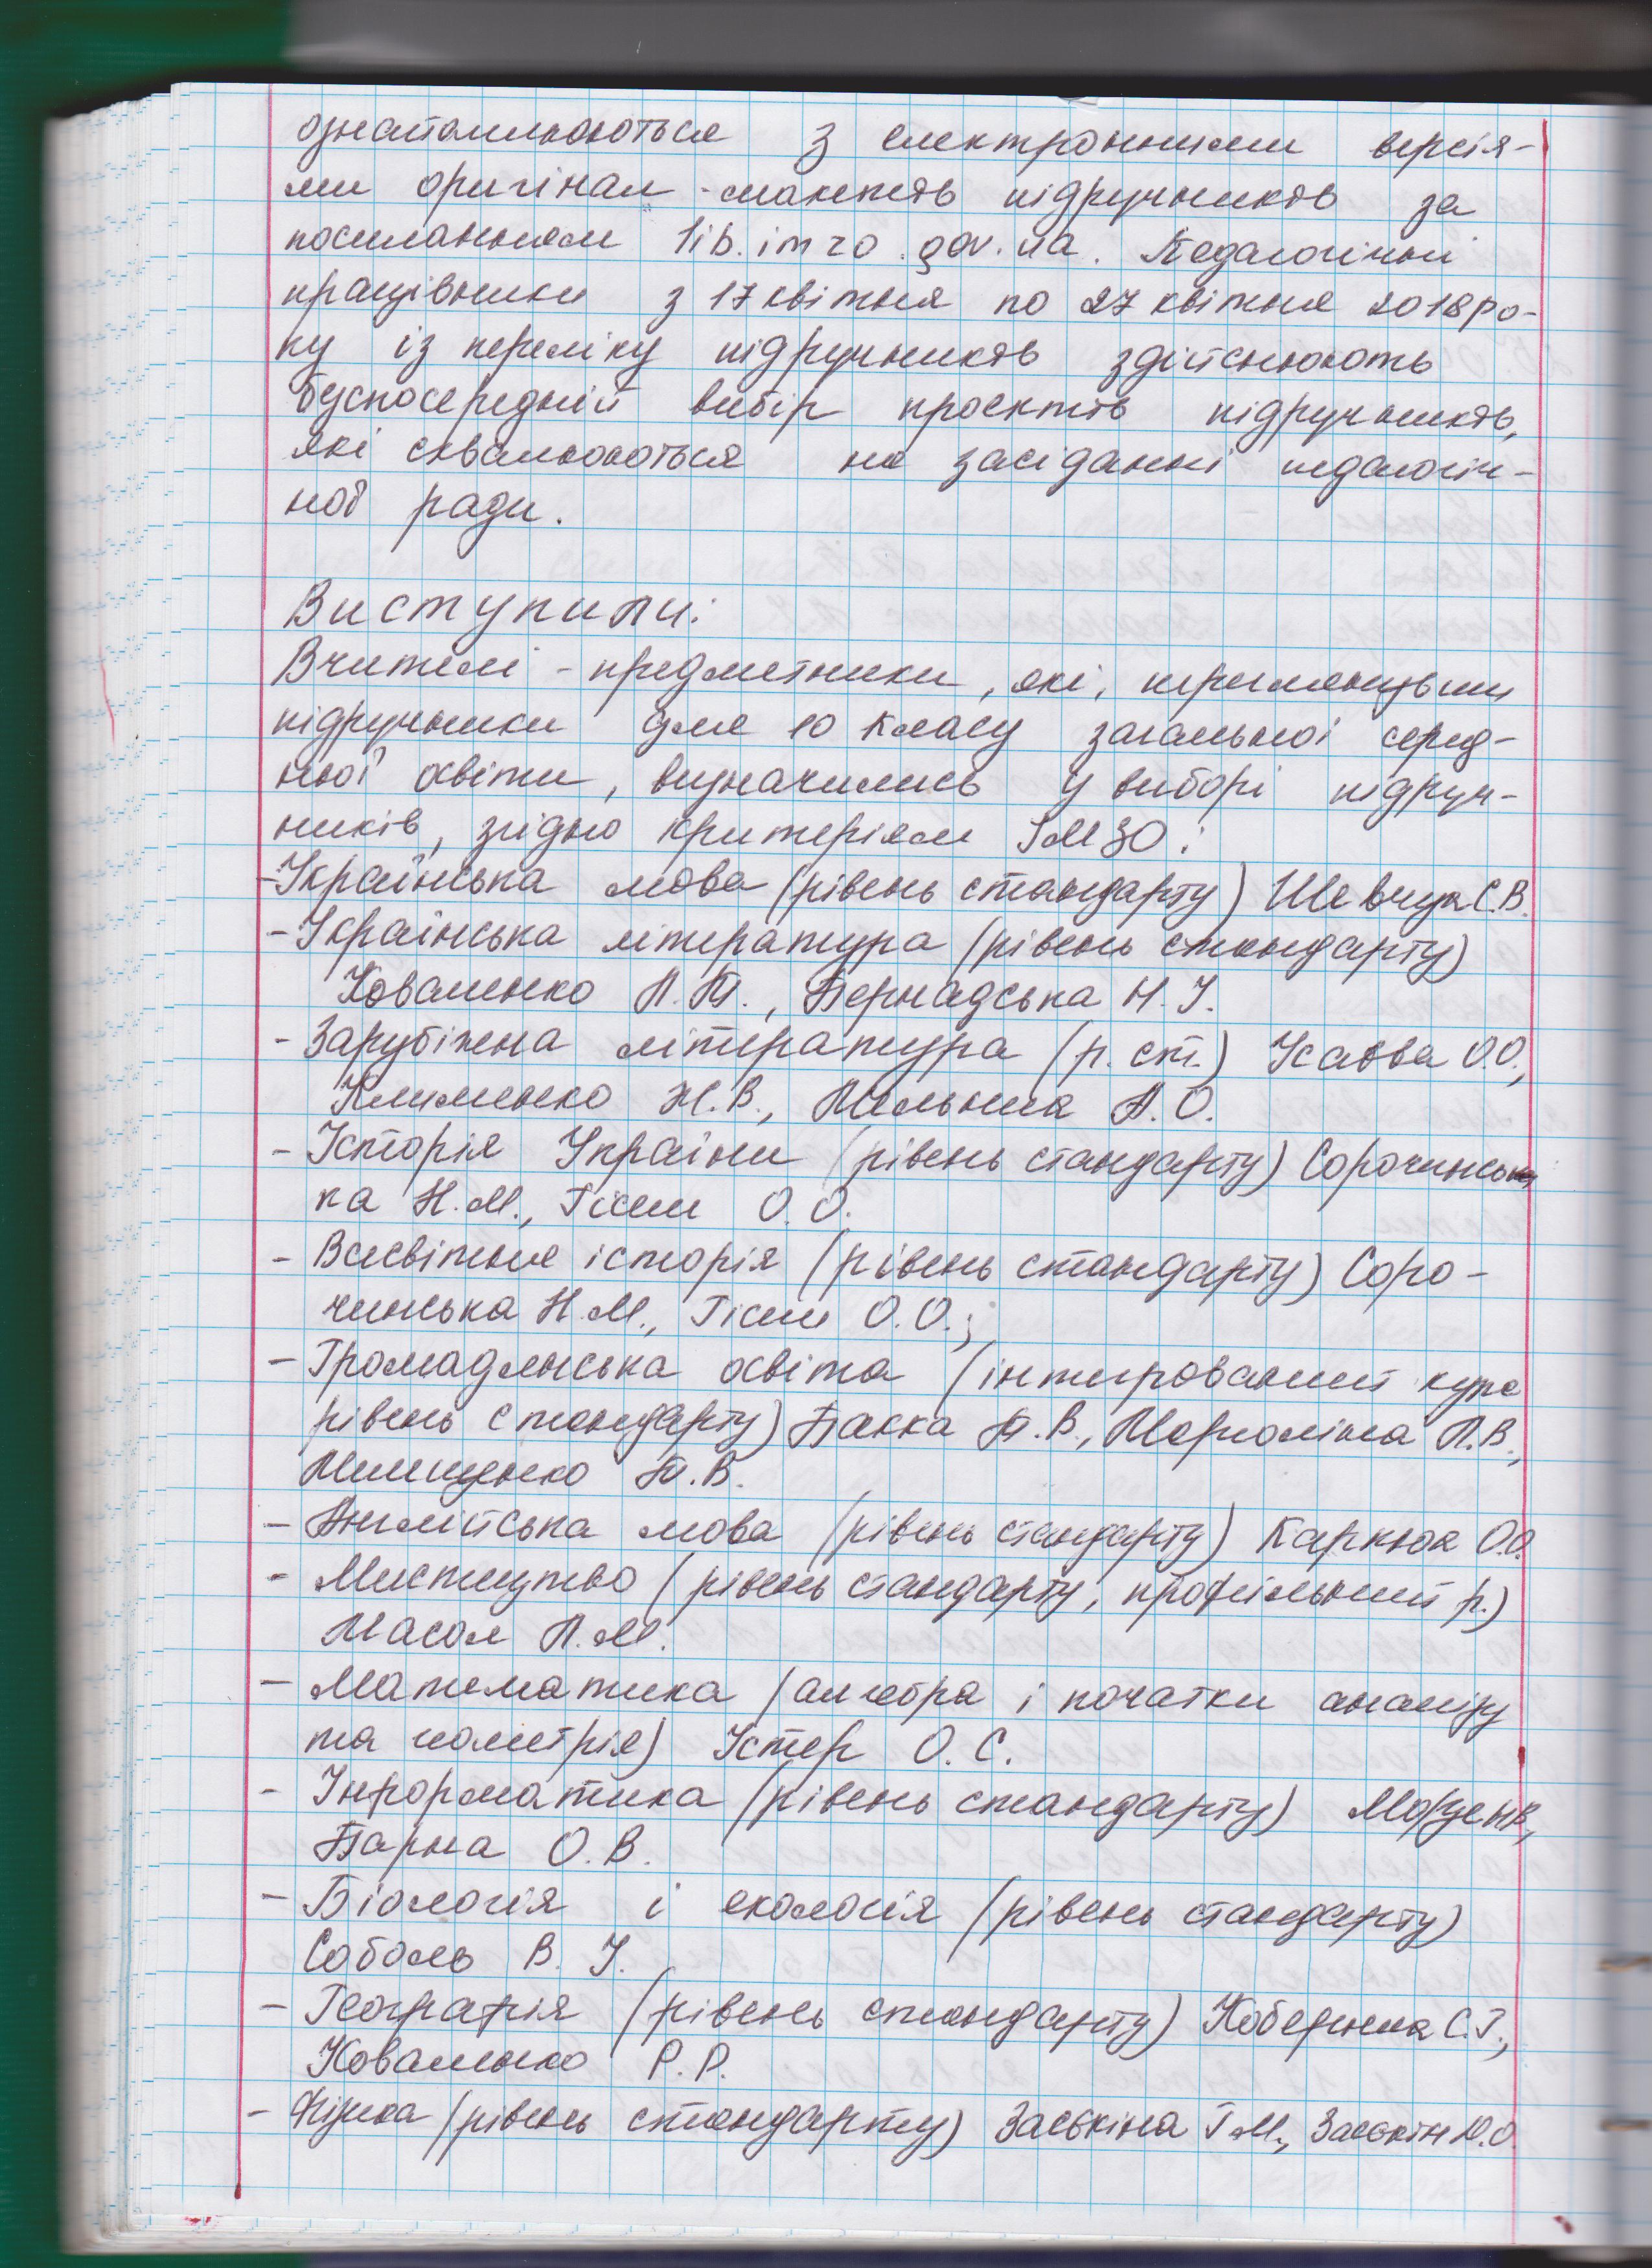 ознайомлюються з електронними версія-
ми оригінал-макетів підручників за
посиланням lib.imzo.gov.ua. Педагогічні
працівники з 17 квітня по 27 квітня 2018 ро-
ку із переліку підручників здійснюють
безпосередній вибір проектів підручників,
які схвалюються на засіданні педагогіч-
ної ради.
Виступили:
Вчителі - предметники, які, переглянувши
підручники для 10 класу загальної серед-
ньої освіти, визначились у виборі підруч-
ників, згідно критеріям ІМЗО:
- Українська мова (рівень стандарту) Шевчук С.В.
- Українська література (рівень стандарту)
Коваленко Л.Т., Бернадська Н.І.
- Зарубіжна література (р. ст.) Ісаєва О.О.,
Клименко Ж.В., Мельник А.О.
- Історія України (рівень стандарту) Сорочинсь
ка Н.М., Гісем О.О.
- Всесвітня історія (рівень стандарту) Соро-
чинська Н.М., Гісем О.О.;
- Громадянська освіта (інтегрований курс
рівень стандарту) Бакка Т.В., Марголіна Л.В.,
Мелещенко Т.В.
- Англійська мова (рівень стандарту) Карпюк О.Д.
- Мистецтво (рівень стандарту, профільний р.)
Масол Л.М.
- Математика (алгебра і початки аналізу
та геометрія) Істер О.С.
- Інформатика (рівень стандарту)
Барна О.В.
- Біологія і екологія (рівень стандарту)
Соболь В.І.
- Географія (рівень стандарту) Кобернік С.Г.,
Коваленко Р.Р.
- Фізика (рівень стандарту) Засєкіна Т.М., Засєкін Д.О.